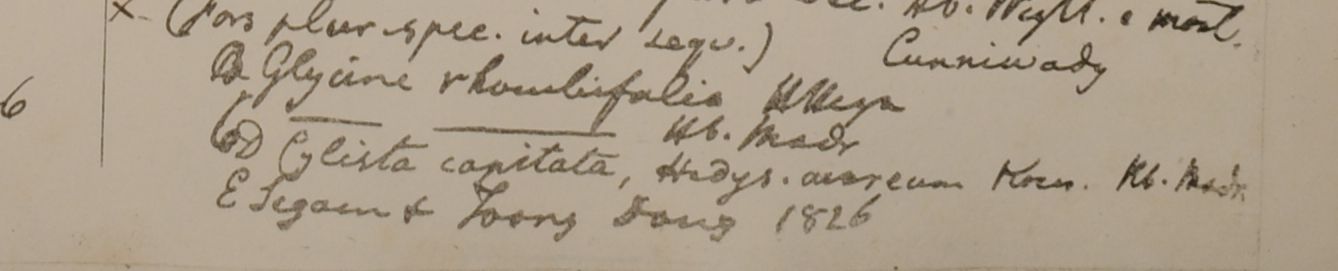 Hb. Wight. e mont.
× (Fors plur. spec. inter sequ.) Cunniwady
B Glycine rhombifolia HHeyn
C —— —— Hb. Madr
D Cylista capitata, Hedys. aureum Koen. Hb. Madr
E Segaen & Toong Dong 1826
6